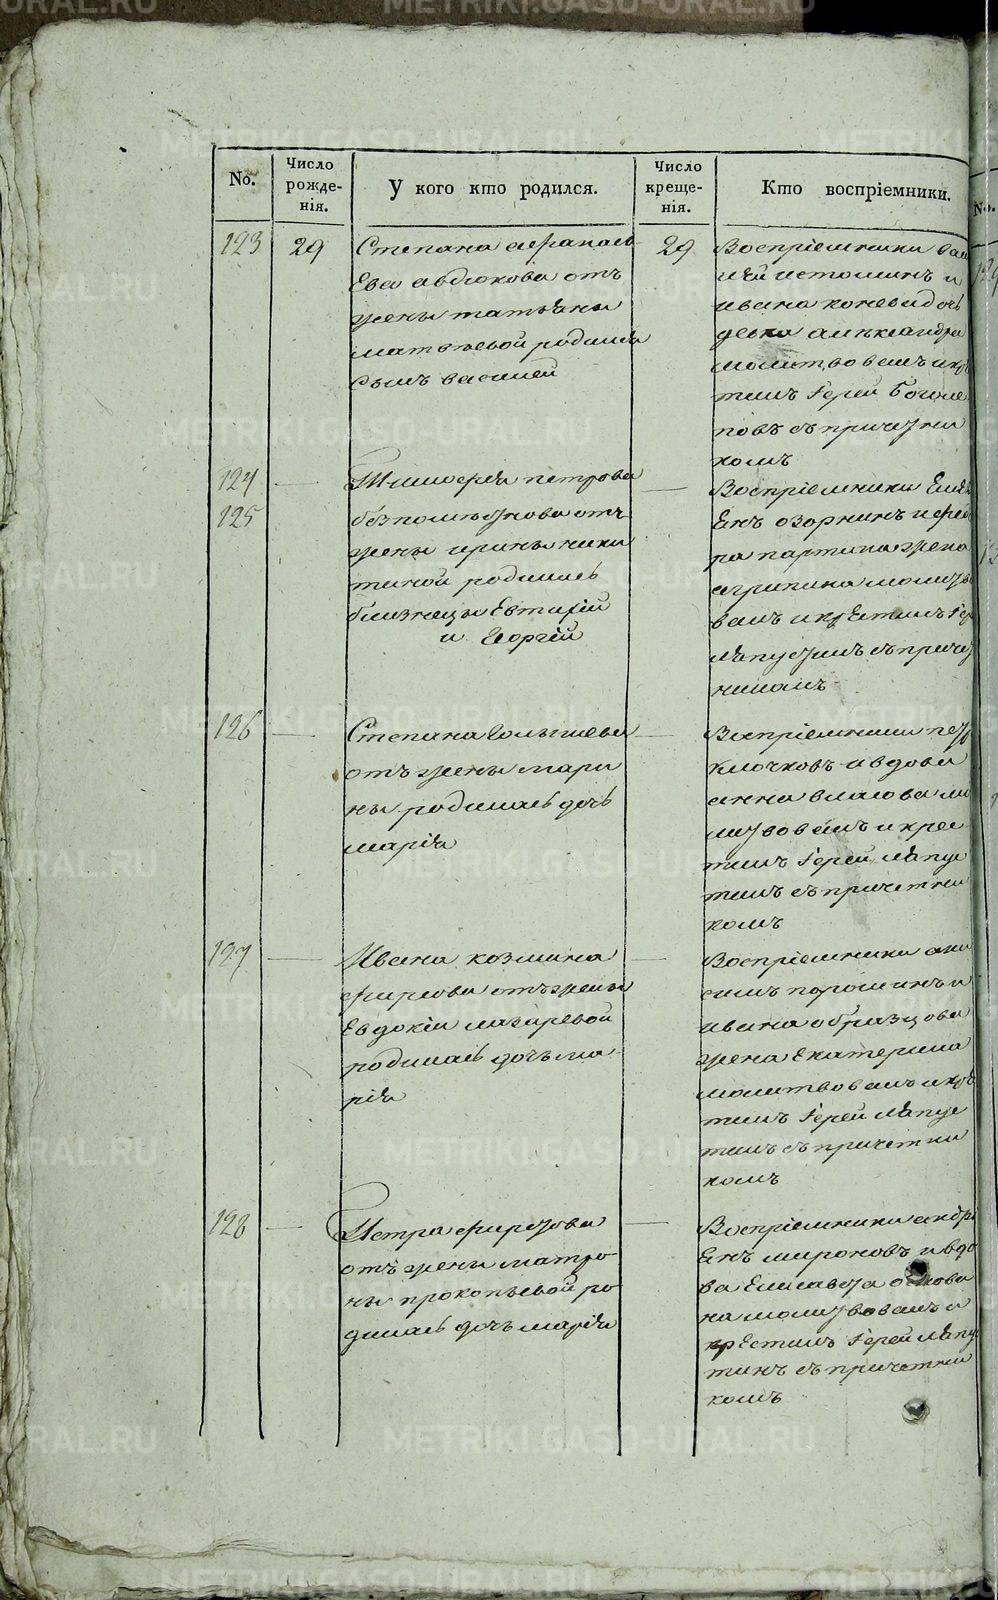 No.
Число рожде- нія.
У кого кто родился.
Число креще- нія.
Кто воспріемники.
123
29
Степана афанасъ
Ева авдюкова отъ
жены татьяны
матвъевой родился
сынъ василей
29
Воспріемники
илѣй истоминъ и
ивана коневи дочь
девка александра
молитвовалъ и кр
тилъ Іерей Боголе
повъ съ причетни
комъ
124
125
Тимофѣя петрова
безпомъ
жены ирины ники
тиной родились
близнецы Евтихій
и Георгій
Воспріемники
Енъ озорнинъ и
ра партина жена
агрипина молит
валъ и крЕстилъ Іер
лапустинъ съ причет
никомъ
126
Степана голышева
отъ жены мари
ны родилась дочь
марія
Воспріемники
клочковъ и вдова
анна власова мо
литвовалъ и крес
тилъ Іерей лапус
тинъ съ причетни
комъ
127
Ивана козмина
фирсова отъ жены
Евдокіи лазаревой
родилась дочь ма-
рія
Воспріемники они
симъ порошинъ и
ивана образцова
жена екатерина
молитвовалъ и крѣ
тилъ Іерей лапус
тинъ съ причетни
комъ
128
Петра фирсова
отъ жены матро-
ны прокопьевой ро-
дилась дочь марія
Воспріемники андрі
Енъ мироновъ и вдо
ва Елисавета
на молитвовалъ и
крЕстилъ Іерей лапус
тинъ съ причетни
комъ
METRIKI.GASO-URAL.RU